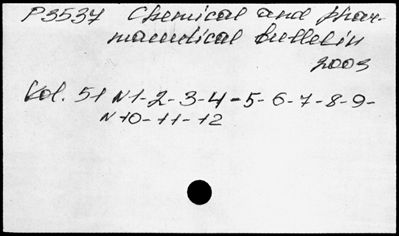 P3537 Chemical and phar-
maceutical bulletin
2003
Vol. 51 N1-2-3-4-5-6-7-8-9-
N10-11-12